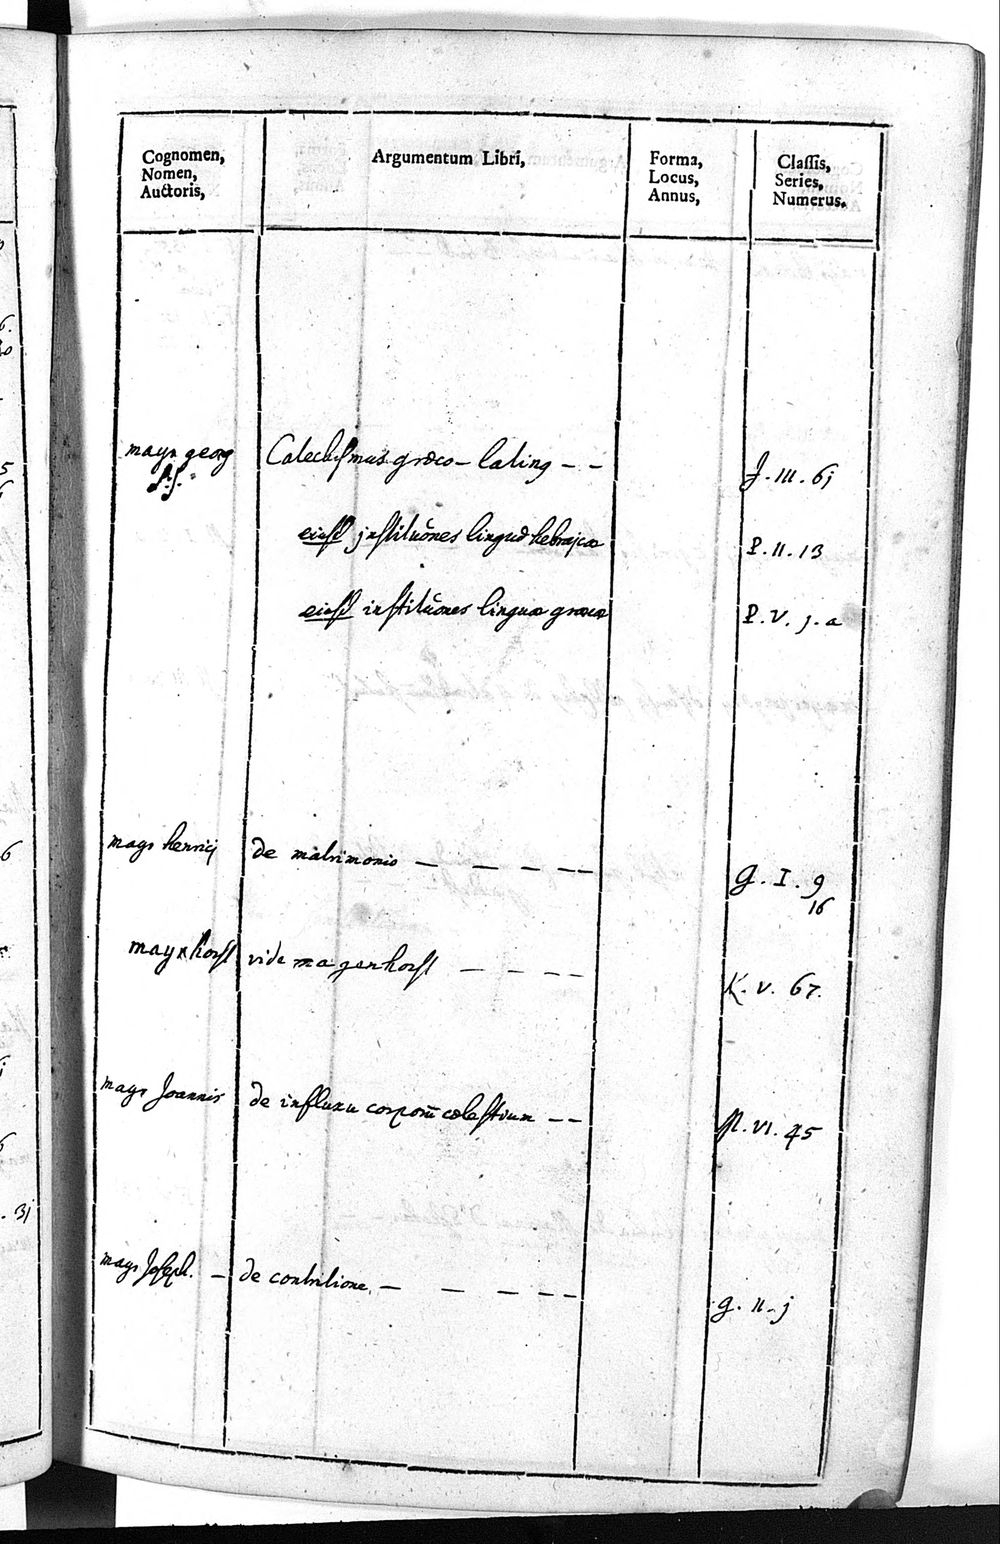 Cognomen,
Nomen,
Auctoris,
Argumentum Libri,
Forma,
Locus,
Annus,
Classis,
Series,
Numerus.
mayr georg Catechismus græco-latinq - - J. III. 6j
eiusd jnstitutiōnes linguæ hebrajcæ P. II. 13
eiusd institutiōnes linguæ græcæ P. V. j. a
mayr henricj de matrimonio — — — — — g. I. 9
16
mayrhorst vide magenhorst — — — — K. V. 67.
mayr Joannis de influxu corporū cœlestium — — N. VI. 45
mayr Joseph. — de contritione. — — — — — g. II. j